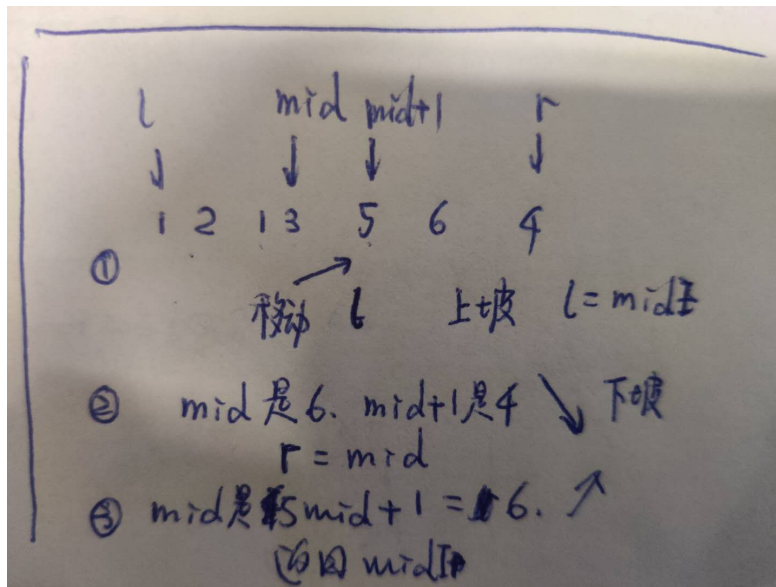 l mid mid+1 r
1 2 1 3 5 6 4
①
移动 l 上坡 l = mid
② mid是6、mid+1是4 下坡
r = mid
③ mid是5 mid+1 = 6.
返回 mid